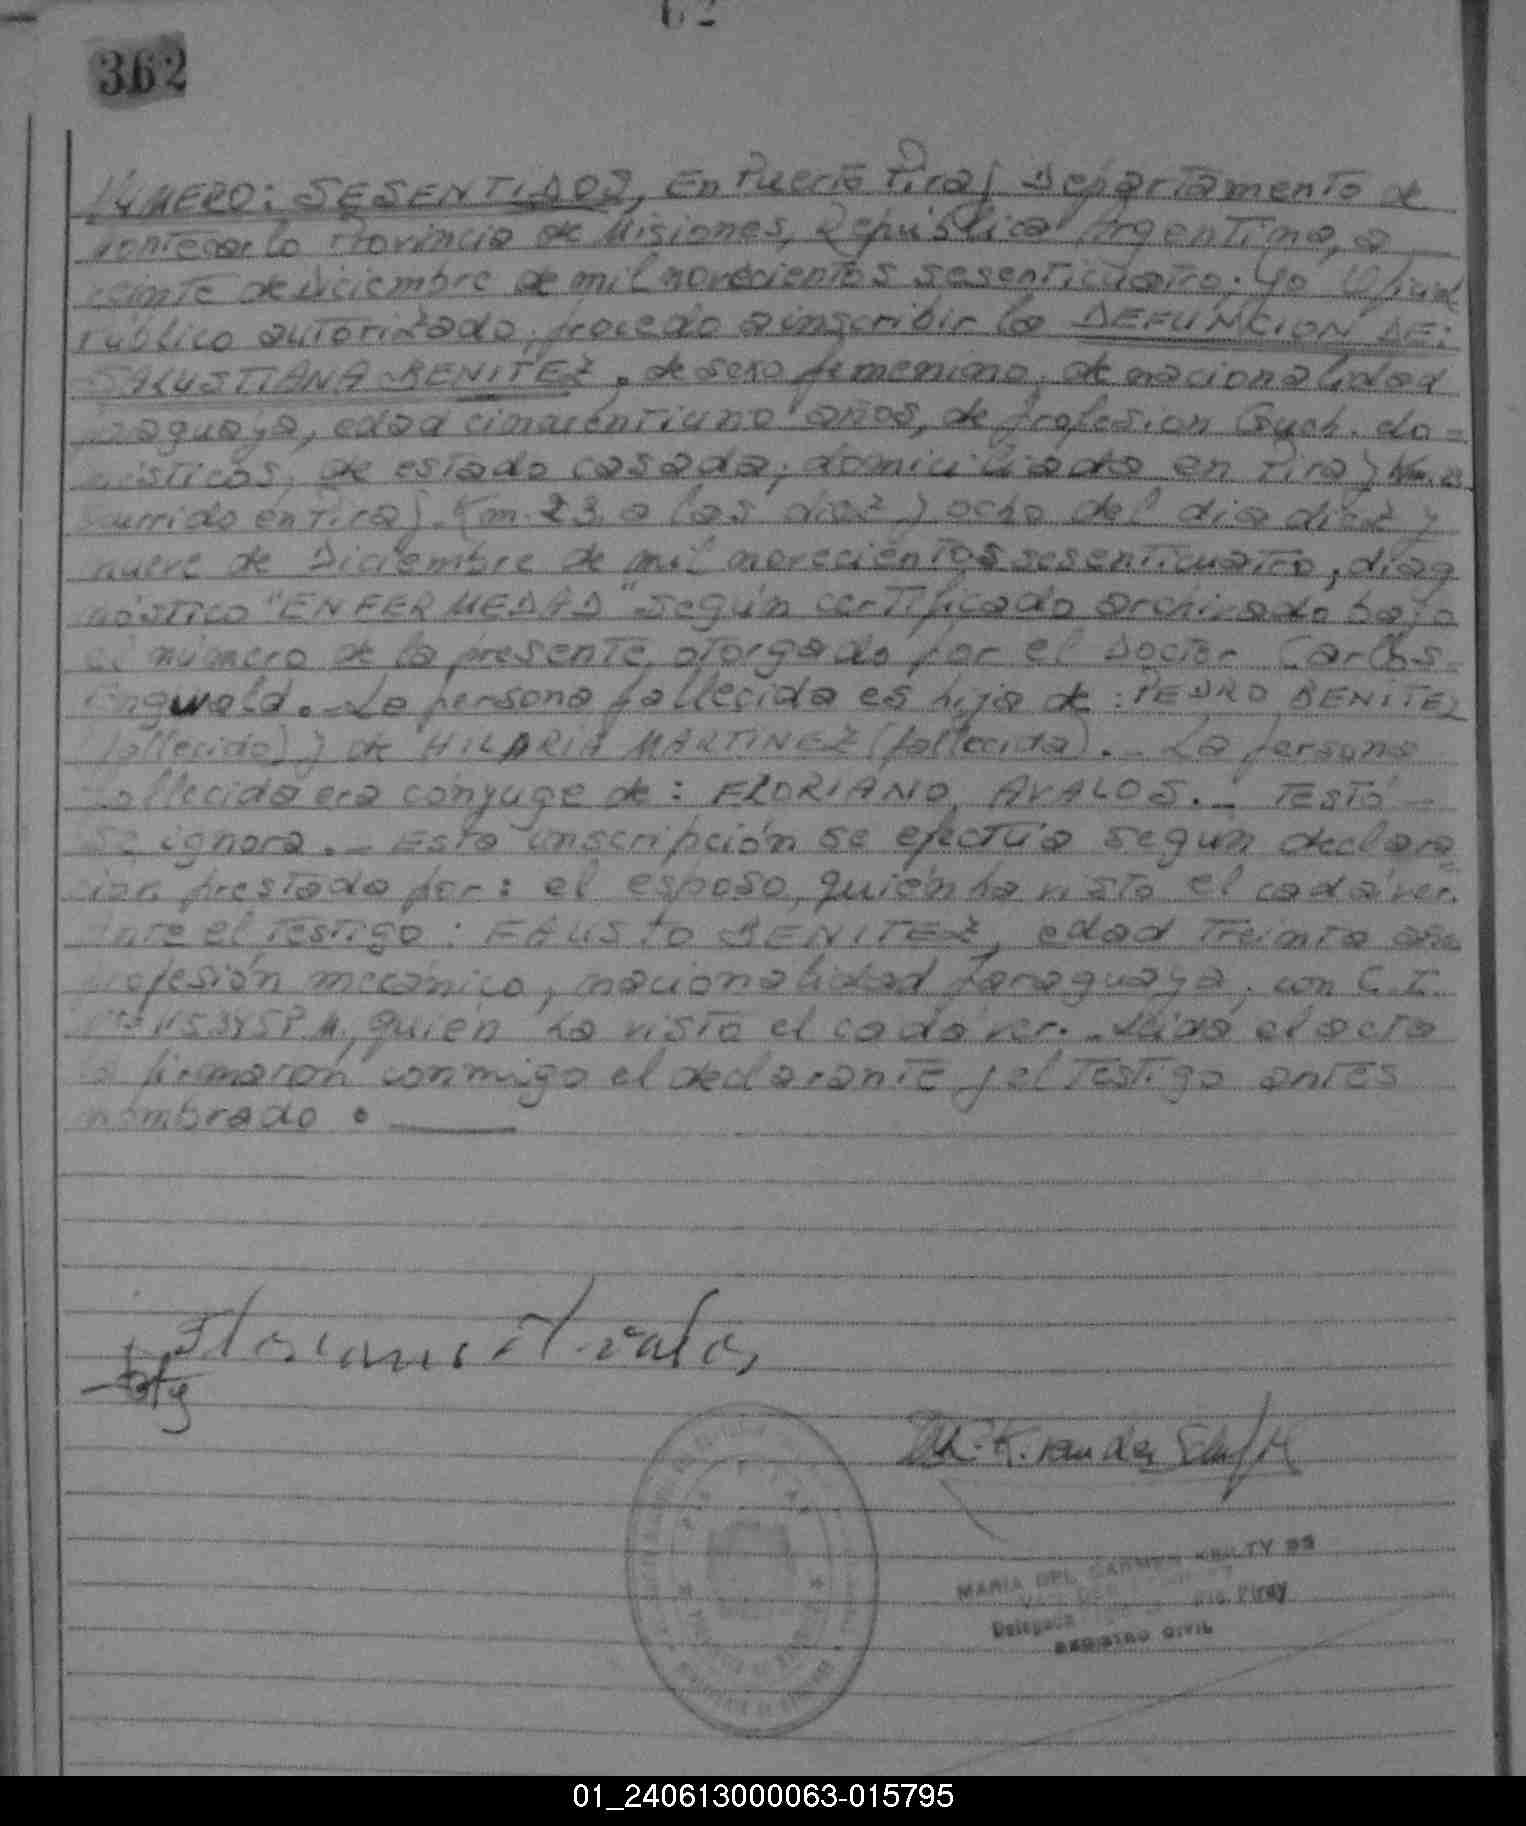 62
362
NUMERO: SESENTIDOS, En Puerto Piray Departamento de
Montecarlo Provincia de Misiones, República Argentina, a
veinte de Diciembre de mil novecientos sesenticuatro. Yo Oficial
Público autorizado, procedo a inscribir la DEFUNCION DE:
SALUSTIANA BENITEZ, de sexo femenino, de nacionalidad
paraguaya, edad cincuentiuno años, de profesion Queh. do=
mésticos, de estado casada, domiciliada en Piray Km. 23
ocurrido en Piray Km. 23 a las diez y ocho del dia diez y
nueve de Diciembre de mil novecientos sesenticuatro, diag
nóstico "ENFERMEDAD" según certificado archivado bajo
el número de la presente, otorgado por el Doctor Carlos
La persona fallecida es hija de: PEDRO BENITEZ
(fallecido) y de HILARIA MARTINEZ (fallecida). - La persona
fallecida era cónyuge de: FLORIANO AVALOS. - Testó -
se ignora. - Esta inscripción se efectúa según declara
ción prestada por: el esposo, quién ha visto el cadáver.
Ante el testigo: FAUSTO BENITEZ, edad treinta años
profesión mecánico, nacionalidad paraguaya, con C.I.
quién ha visto el cadáver. - Leída el acta
la firmaron conmigo el declarante y el testigo antes
nombrado.
Floriano Avalos
MARIA DEL CARMEN KEILTY DE
Delegada Pto. Piray
REGISTRO CIVIL
01_240613000063-015795